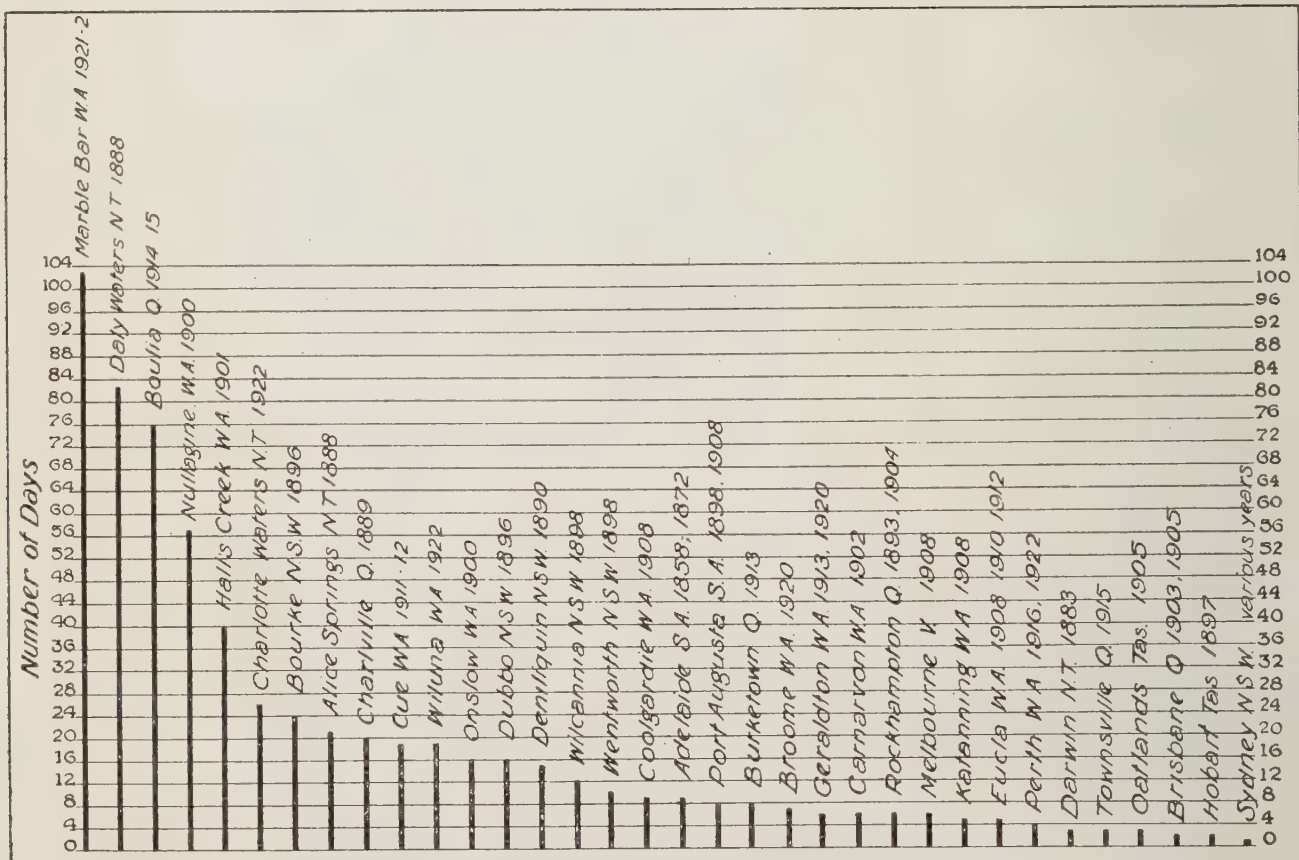 Number of Days
104
100
96
92
88
84
80
76
72
68
64
60
56
52
48
44
40
36
32
28
24
20
16
12
8
4
0
Marble Bar W.A 1921-2
Daly Waters N T 1888
Boulia Q. 1914 15
Nullagine. W.A. 1900
Halls Creek W.A. 1901
Charlotte Waters N.T 1922
Bourke N.S.W. 1896
Alice Springs N T 1888
Charlville Q. 1889
Cue WA 1911-12
Wiluna WA 1922
Onslow WA 1900
Dubbo NSW 1896
Deniliquin NSW. 1890
Wilcannia NSW 1898
Wentworth NSW 1898
Coolgardie WA. 1908
Adelaide S A. 1858, 1872
Port Augusta S.A. 1898, 1908
Burketown Q. 1913
Broome W.A. 1920
Geraldton WA. 1913, 1920
Carnarvon WA. 1902
Rockhampton Q. 1893, 1904
Melbourne V. 1908
Katanning WA 1908
Eucla WA. 1908 1910 1912
Perth WA 1916, 1922
Darwin N.T. 1883
Townsville Q. 1915
Oatlands Tas. 1905
Brisbane Q 1903, 1905
Hobart Tas 1897
Sydney N S W. various years
104
100
96
92
88
84
80
76
72
68
64
60
56
52
48
44
40
36
32
28
24
20
16
12
8
4
0